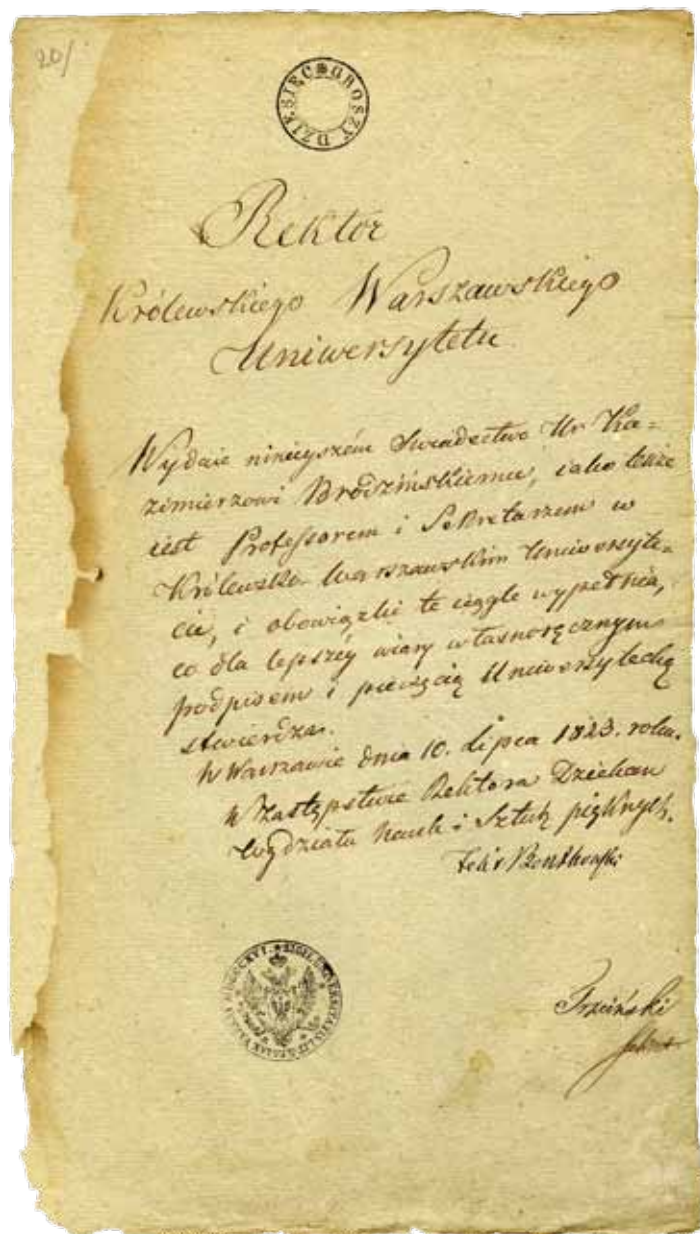 20/
DZIESIĘC GROSZY
Rektor
Królewskiego Warszawskiego
Uniwersytetu
Wydaie ninieyszém Swiadectwo Ur. Ka=
zimierzowi Brodzińskiemu, iako tenże
iest Professorem i Sekretarzem w
Królewsko-Warszawskim Uniwersyte=
cie, i obowiązki te ciągle wypełnia,
co dla lepszéy wiary własnoręcznym
podpisem i pieczęcią Uniwersytecką
stwierdza.
W Warszawie dnia 10. Lipca 1823. roku.
W Zastępstwie Rektora Dziekan
Wydziału Nauk i Sztuk pięknych.
Felix Bentkowski
Trzciński